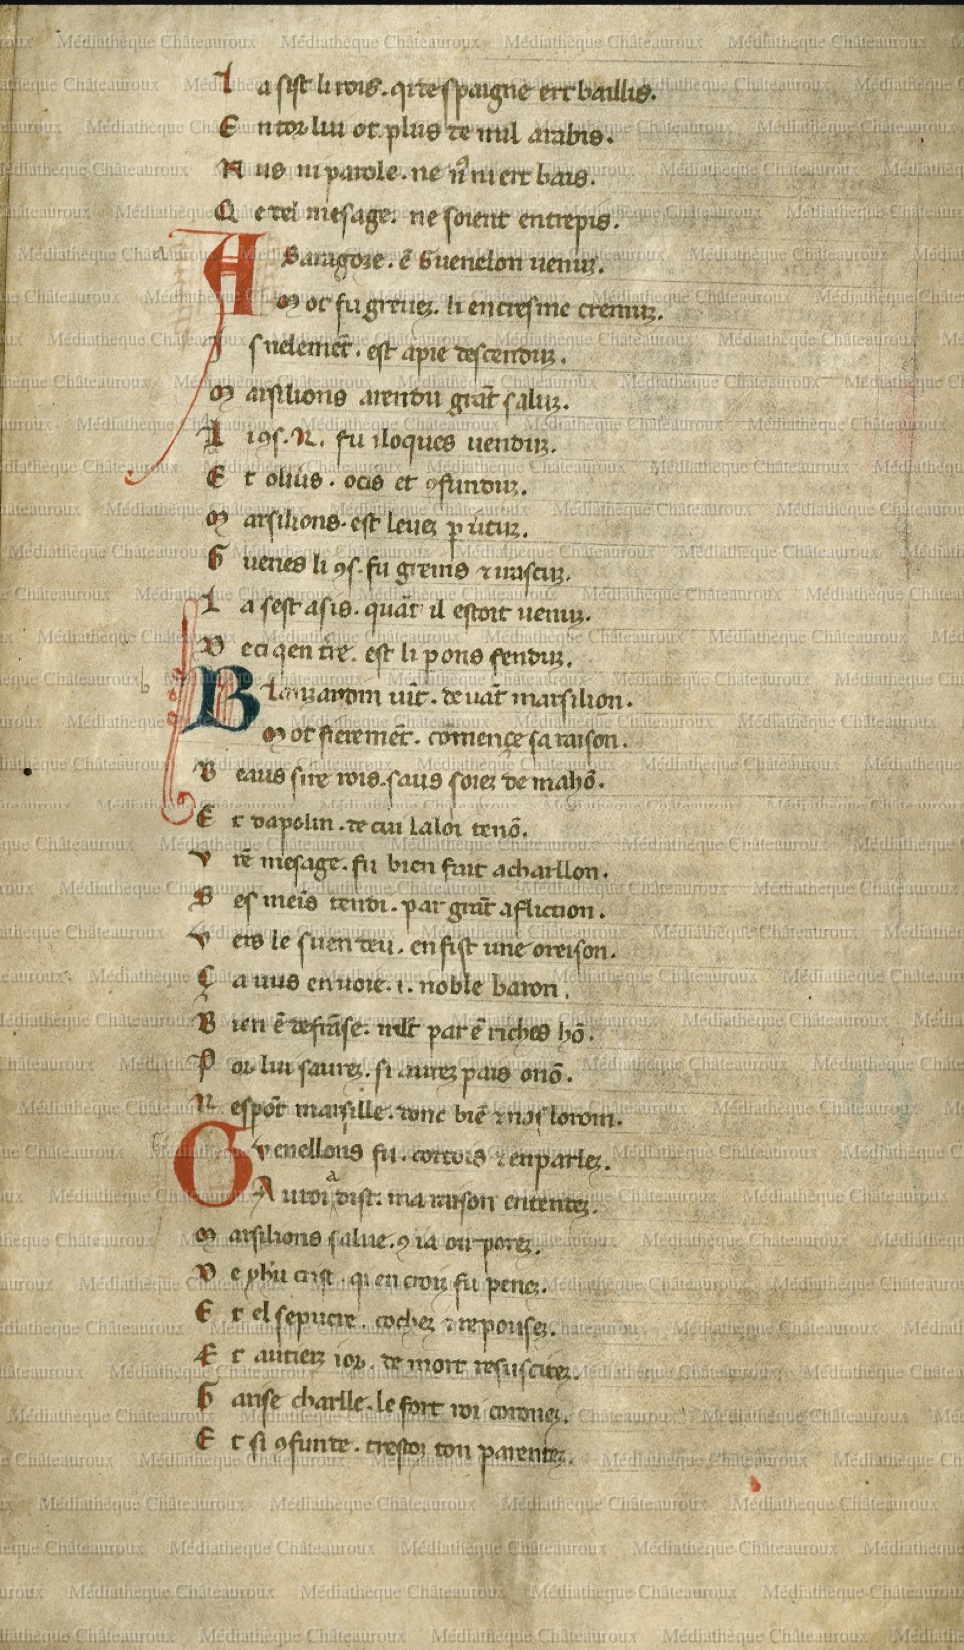 L a sist li rois . qi despaigne ert baillis .
E ntor lui ot . plus de mil arabis .
N us ni parole . ne nꝰ ni ert bais .
Q e tel mesage . ne soient entrepis .
A Saragoze . ē Guenelon venuz .
M ot fu grevez . li encresme cremuz .
I snelemēt . est apie descenduz .
M arsilions arendu grāt saluz .
L iꝯs . R . fu iloques venduz .
E t oliūs . ocis et ꝯfunduz .
M arsilions . est levez p ūtuz .
G uenes li ꝯs . fu greins ⁊ irascuz .
L a sest asis . quāt il estoit venuz .
D eci qen tre . est li pons fenduz .
B Lanzandin vīt . devāt marsilion .
M ot fieremēt . cōmençe sa raison .
B eaus sire rois . saus soiez de mahō .
E t dapolin . de cui laloi tenō .
V rē mesage . fu bien fait acharllon .
S es meīs tendi . par grāt afliction .
V ers le suen deu . en fist une oreison .
Ç a vus envoie . i . noble baron .
B ien ē defrāse . mlt par ē riches hō .
P or lui saurez . si aurez pais onō .
N espōt marsille . donc biē ⁊ nos lorom .
G Venellons fu . cortois ⁊ enparlez .
A uroi a dist . ma raison entendez .
M arsilions salue . ꝯ ia oir porez .
D e yhu crist . qi en croiz fu penez .
E t el sepucre . cochez ⁊ reposez .
E t autierz ior . de mort resuscitez .
G arise charlle . le fort roi coronez .
E t si ꝯfunde . trestoz ton parentez .